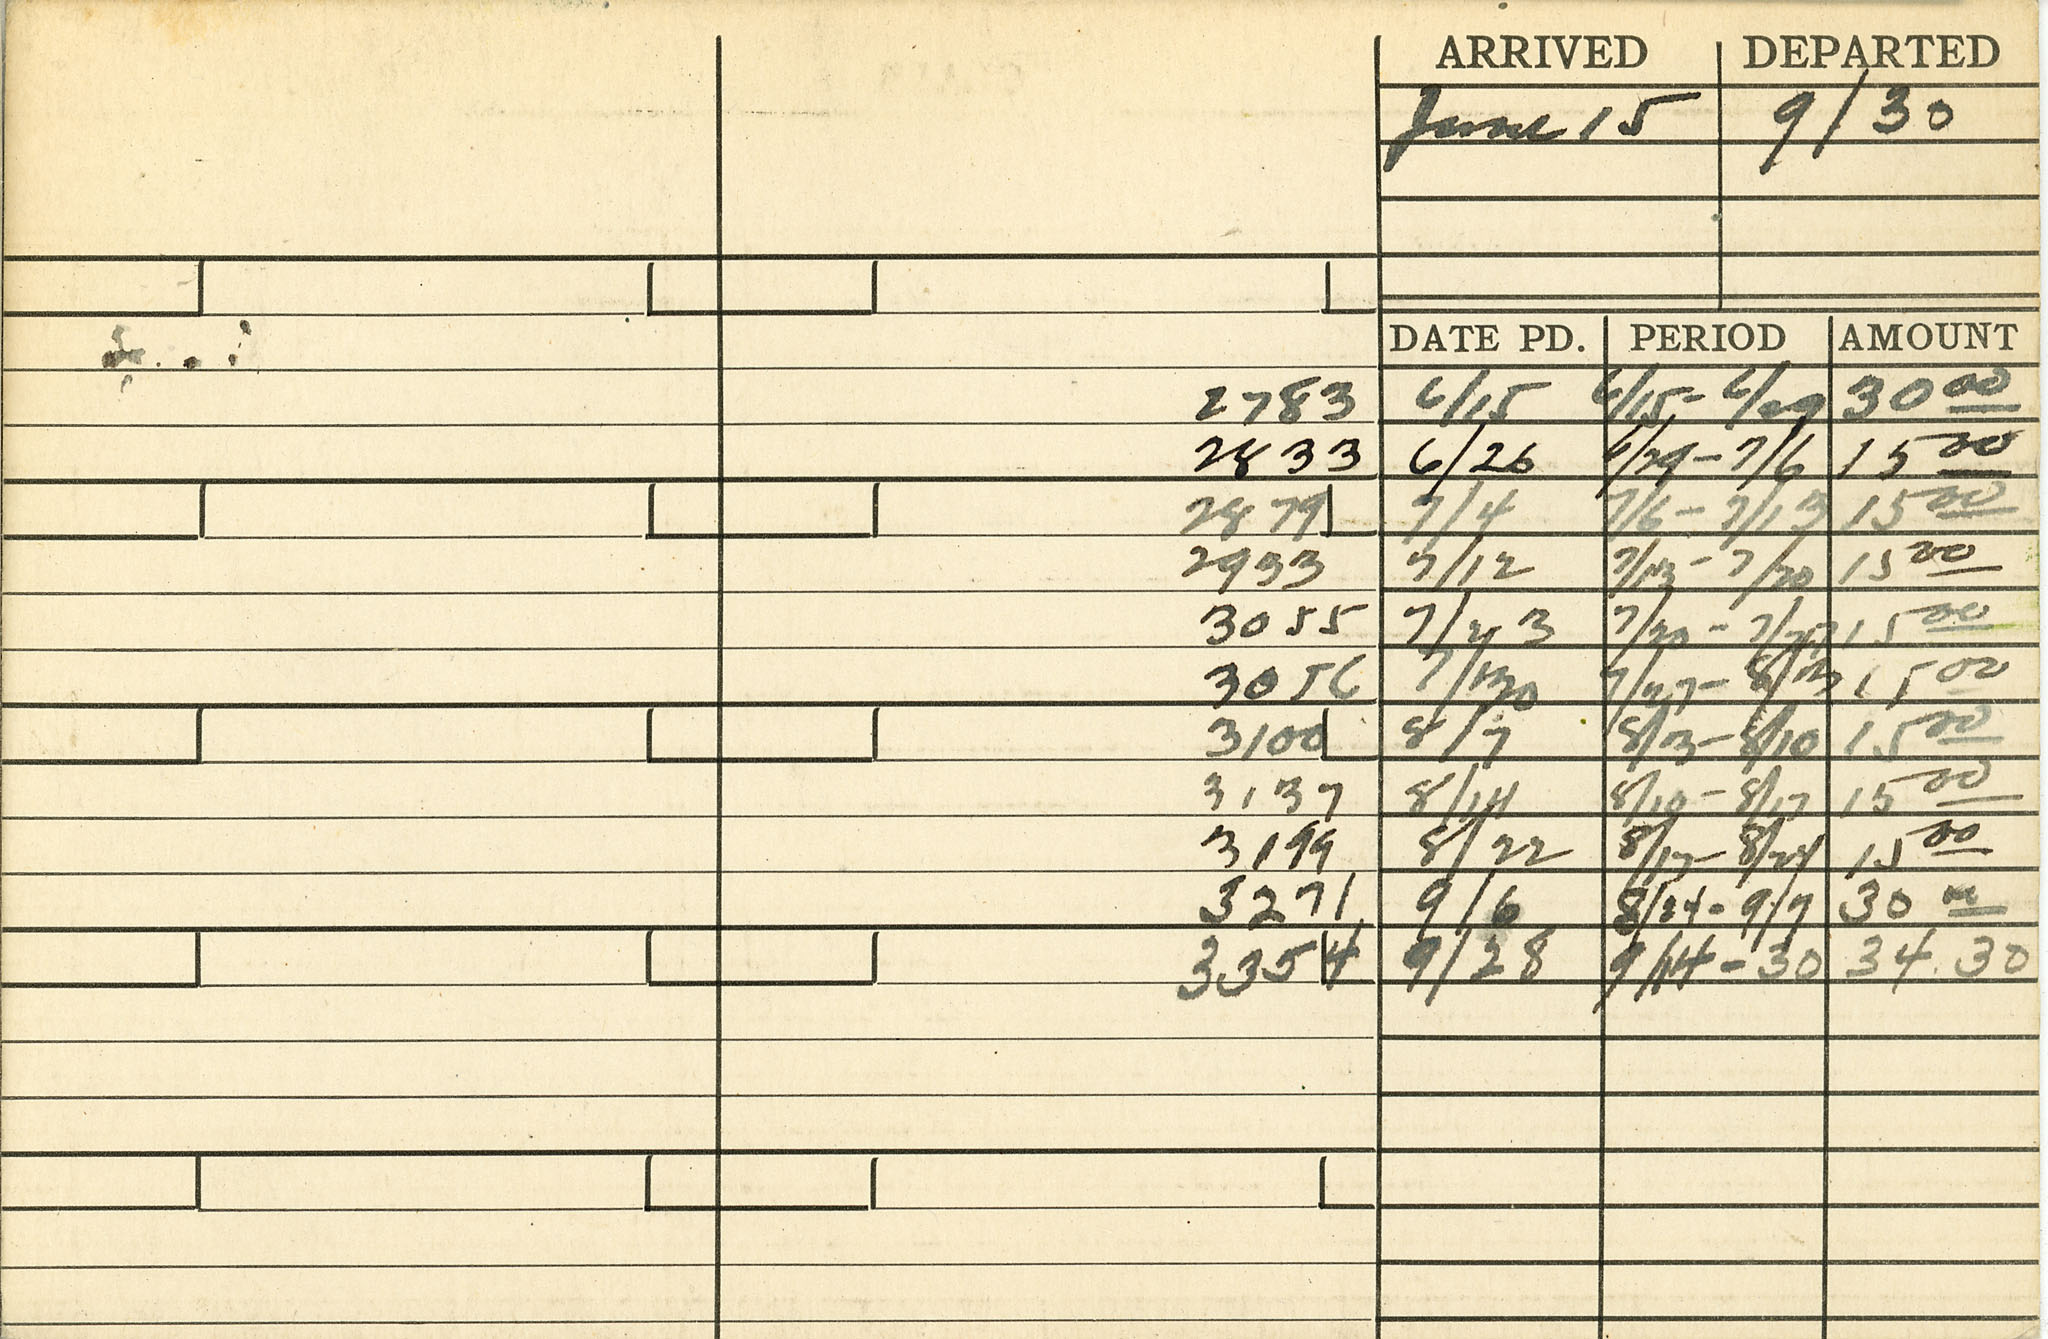 ARRIVED DEPARTED
June 15 9/30
DATE PD. PERIOD AMOUNT
2783 6/15 6/15-6/29 30 00
2833 6/26 6/29-7/6 15 00
2879 7/4 7/6-7/13 15 00
2933 7/12 7/13-7/20 15 00
3055 7/23 7/20-7/27 15 00
3056 7/27- 15 00
3100 8/7 8/3-8/10 15 00
3137 8/14 8/10-8/17 15 00
3199 8/22 8/17-8/24 15 00
3271 9/6 8/24-9/7 30 00
3354 9/28 9/14-30 34.30